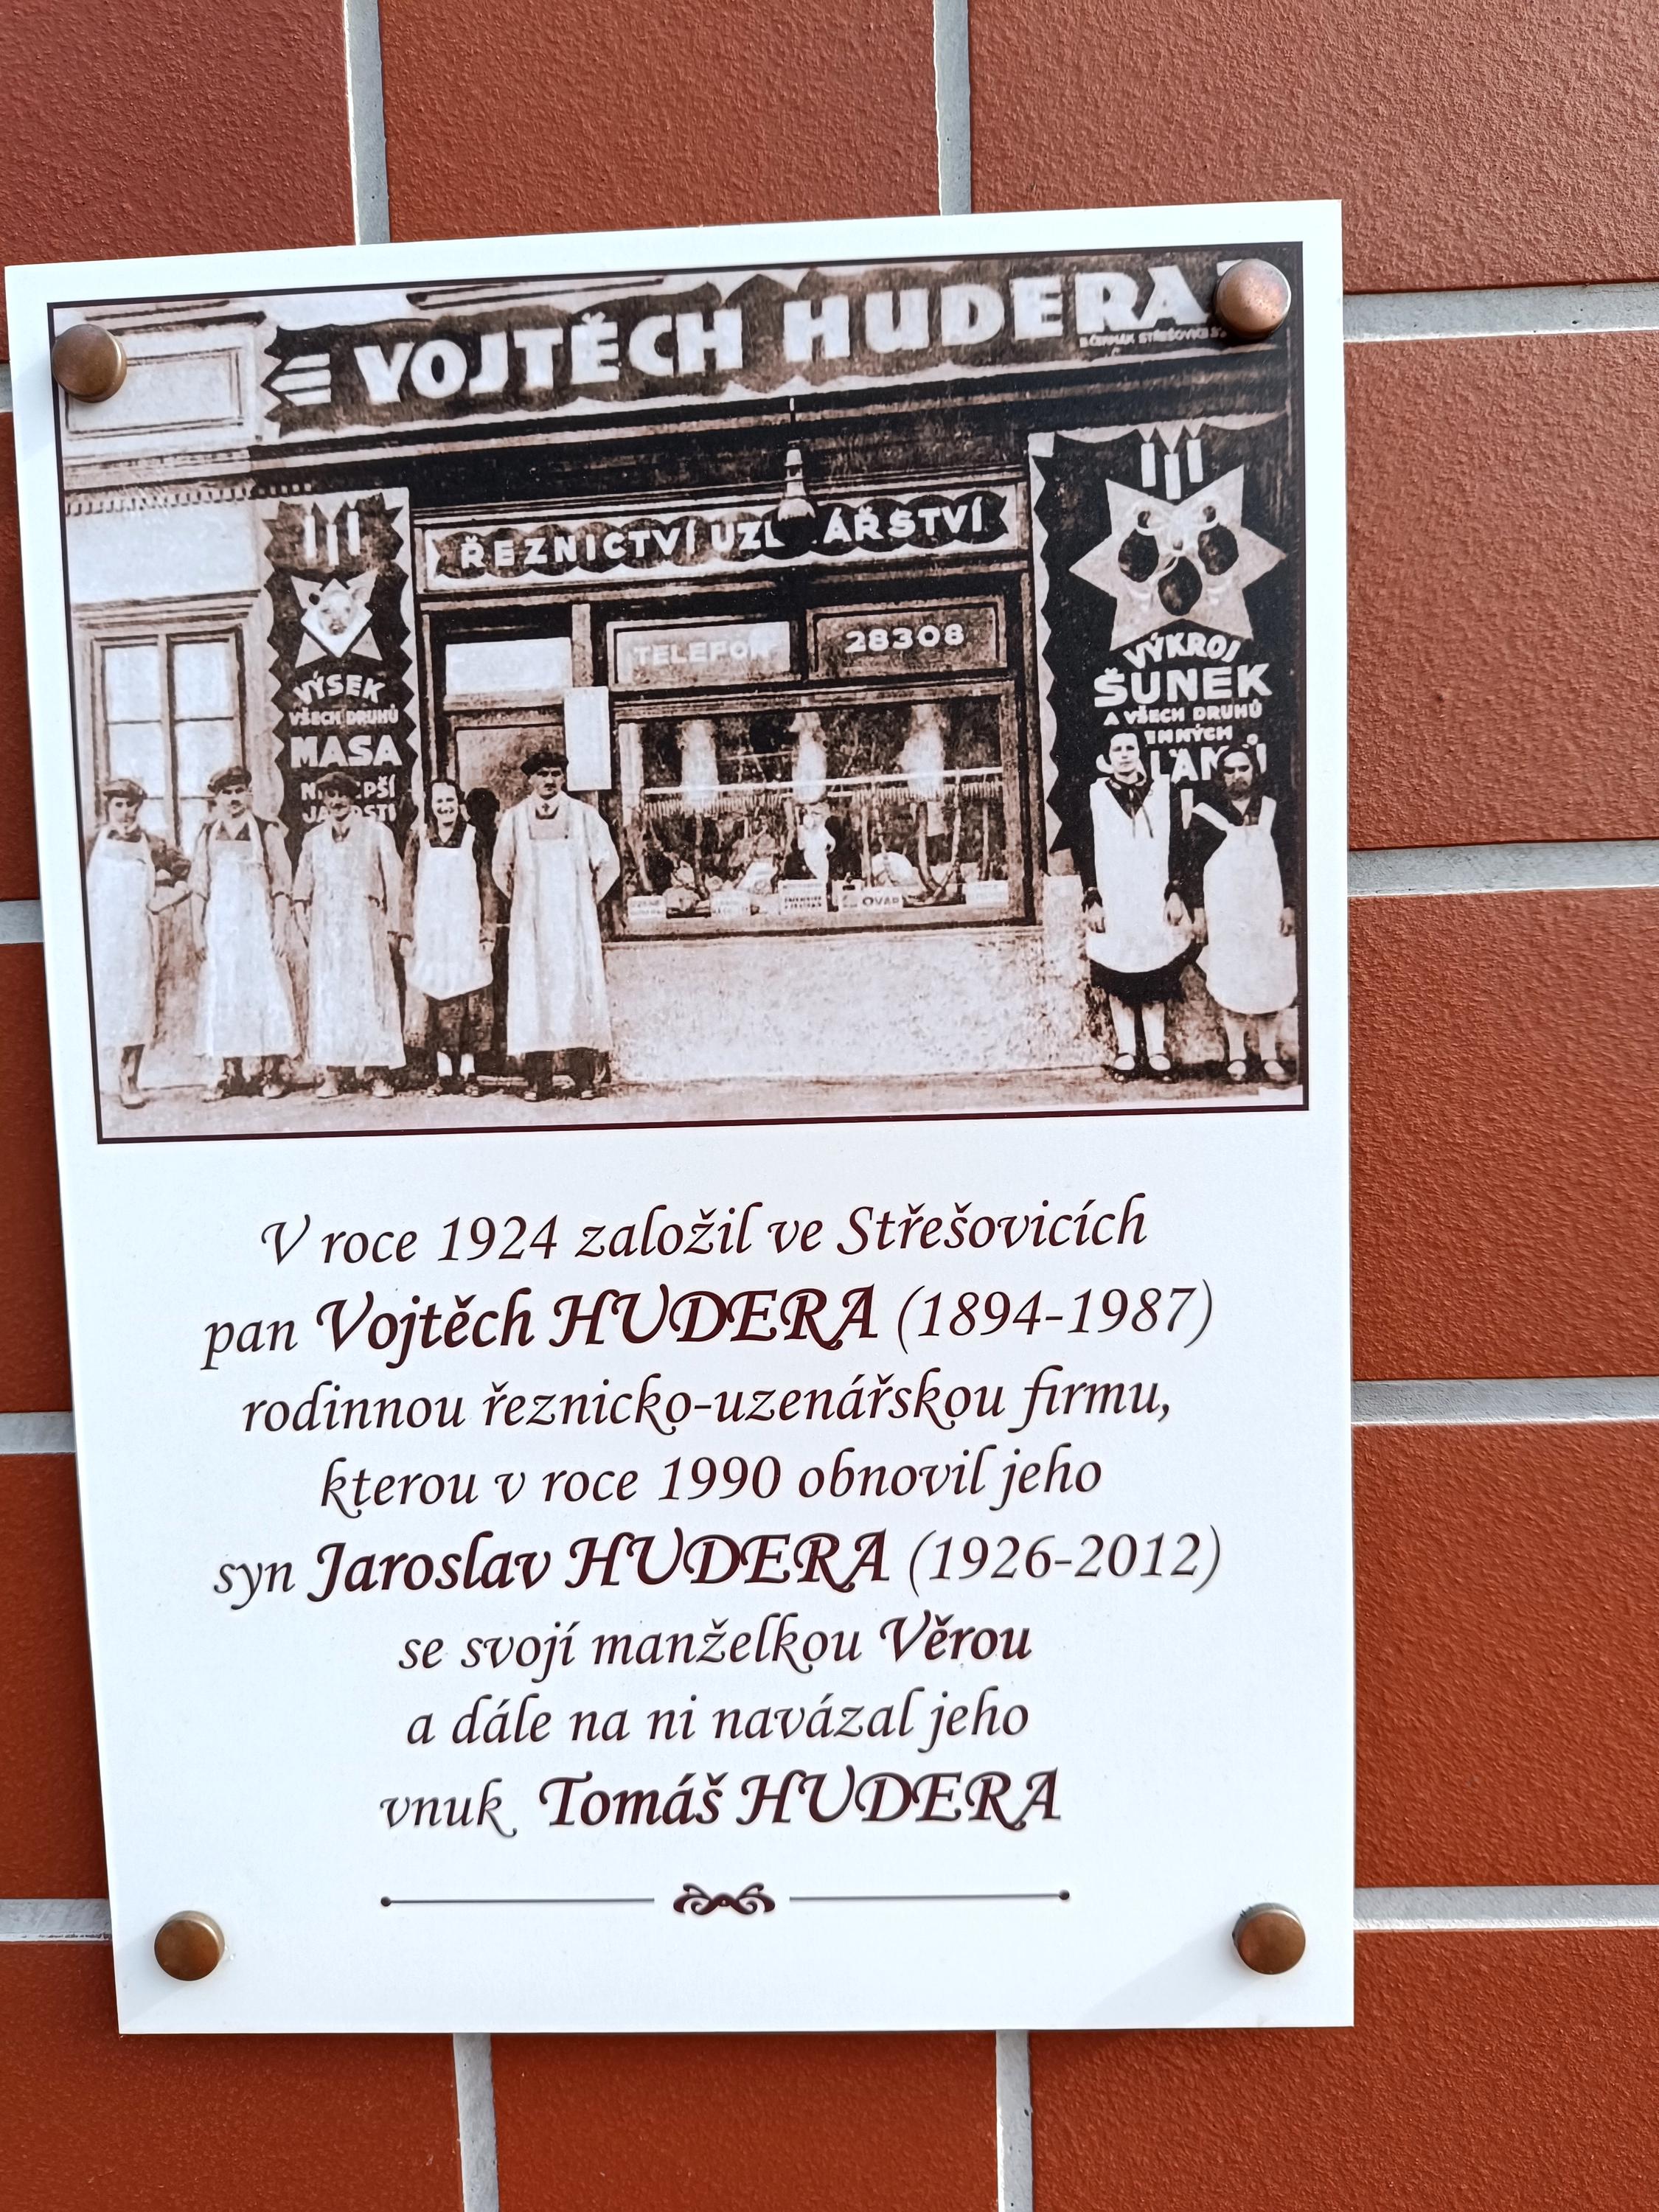 VOJTĚCH HUDERA
ŘEZNICTVÍ
TELEFON 28308
VÝSEK
VŠECH DRUHŮ
MASA
VÝKROJ
ŠUNEK
A VŠECH DRUHŮ
OVAR
V roce 1924 založil ve Střešovicích
pan Vojtěch HUDERA (1894-1987)
rodinnou řeznicko-uzenářskou firmu,
kterou v roce 1990 obnovil jeho
syn Jaroslav HUDERA (1926-2012)
se svojí manželkou Věrou
a dále na ni navázal jeho
vnuk Tomáš HUDERA